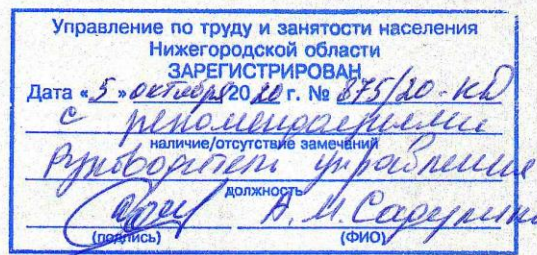 Управление по труду и занятости населения
Нижегородской области
ЗАРЕГИСТРИРОВАН
Дата «5» октября 2020 г. № 875/20-КД
с рекомендациями
наличие/отсутствие замечаний
Руководитель управления
должность
А.М.
(подпись) (ФИО)